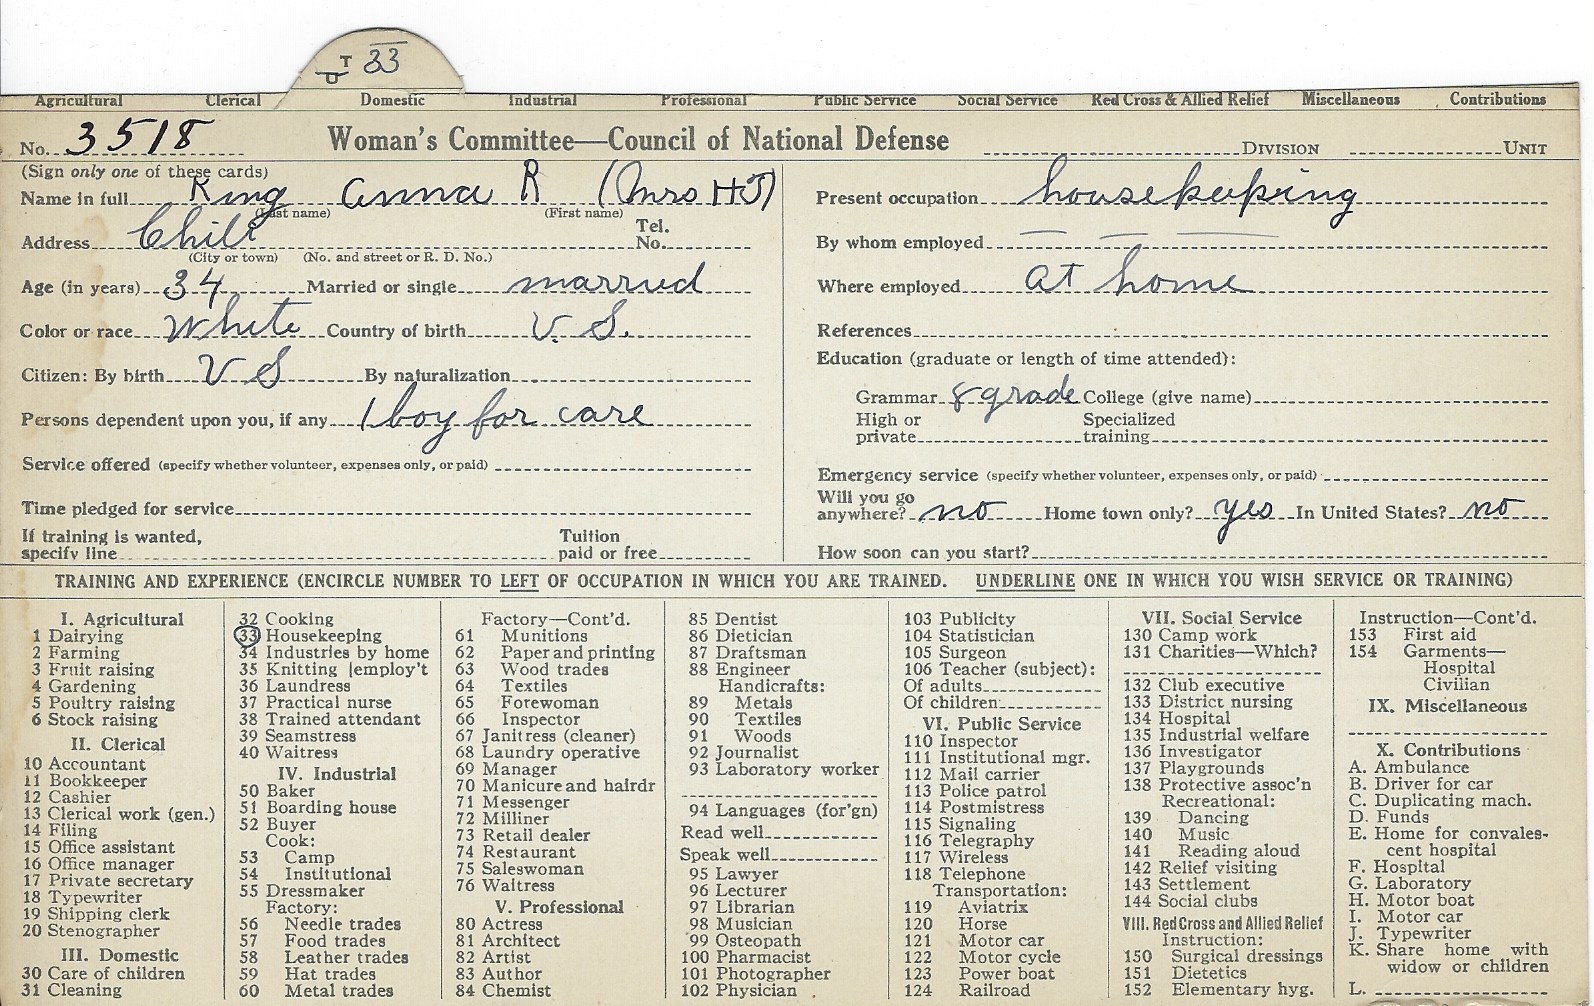 T 33
U
Agricultural Clerical Domestic Industrial Professional Public Service Social Service Red Cross & Allied Relief Miscellaneous Contributions
No. 3518 Woman's Committee—Council of National Defense DIVISION UNIT
(Sign only one of these cards)
Name in full King Anna R (Mrs HJ)
(Last name) (First name)
Address Chili Tel. No.
(City or town) (No. and street or R. D. No.)
Age (in years) 34 Married or single married
Color or race White Country of birth U. S.
Citizen: By birth U S By naturalization
Persons dependent upon you, if any 1 boy for care
Service offered (specify whether volunteer, expenses only, or paid)
Time pledged for service
If training is wanted, specify line Tuition paid or free
Present occupation housekeeping
By whom employed — — —
Where employed at home
References
Education (graduate or length of time attended):
Grammar 8 grade College (give name)
High or private Specialized training
Emergency service (specify whether volunteer, expenses only, or paid)
Will you go anywhere? no Home town only? yes In United States? no
How soon can you start?
TRAINING AND EXPERIENCE (ENCIRCLE NUMBER TO LEFT OF OCCUPATION IN WHICH YOU ARE TRAINED. UNDERLINE ONE IN WHICH YOU WISH SERVICE OR TRAINING)
I. Agricultural
1 Dairying
2 Farming
3 Fruit raising
4 Gardening
5 Poultry raising
6 Stock raising
II. Clerical
10 Accountant
11 Bookkeeper
12 Cashier
13 Clerical work (gen.)
14 Filing
15 Office assistant
16 Office manager
17 Private secretary
18 Typewriter
19 Shipping clerk
20 Stenographer
III. Domestic
30 Care of children
31 Cleaning
32 Cooking
33 Housekeeping
34 Industries by home
35 Knitting [employ't
36 Laundress
37 Practical nurse
38 Trained attendant
39 Seamstress
40 Waitress
IV. Industrial
50 Baker
51 Boarding house
52 Buyer
Cook:
53 Camp
54 Institutional
55 Dressmaker
Factory:
56 Needle trades
57 Food trades
58 Leather trades
59 Hat trades
60 Metal trades
Factory—Cont'd.
61 Munitions
62 Paper and printing
63 Wood trades
64 Textiles
65 Forewoman
66 Inspector
67 Janitress (cleaner)
68 Laundry operative
69 Manager
70 Manicure and hairdr
71 Messenger
72 Milliner
73 Retail dealer
74 Restaurant
75 Saleswoman
76 Waitress
V. Professional
80 Actress
81 Architect
82 Artist
83 Author
84 Chemist
85 Dentist
86 Dietician
87 Draftsman
88 Engineer
Handicrafts:
89 Metals
90 Textiles
91 Woods
92 Journalist
93 Laboratory worker
94 Languages (for'gn)
Read well
Speak well
95 Lawyer
96 Lecturer
97 Librarian
98 Musician
99 Osteopath
100 Pharmacist
101 Photographer
102 Physician
103 Publicity
104 Statistician
105 Surgeon
106 Teacher (subject):
Of adults
Of children
VI. Public Service
110 Inspector
111 Institutional mgr.
112 Mail carrier
113 Police patrol
114 Postmistress
115 Signaling
116 Telegraphy
117 Wireless
118 Telephone
Transportation:
119 Aviatrix
120 Horse
121 Motor car
122 Motor cycle
123 Power boat
124 Railroad
VII. Social Service
130 Camp work
131 Charities—Which?
132 Club executive
133 District nursing
134 Hospital
135 Industrial welfare
136 Investigator
137 Playgrounds
138 Protective assoc'n
Recreational:
139 Dancing
140 Music
141 Reading aloud
142 Relief visiting
143 Settlement
144 Social clubs
VIII. Red Cross and Allied Relief
Instruction:
150 Surgical dressings
151 Dietetics
152 Elementary hyg.
Instruction—Cont'd.
153 First aid
154 Garments—
Hospital
Civilian
IX. Miscellaneous
X. Contributions
A. Ambulance
B. Driver for car
C. Duplicating mach.
D. Funds
E. Home for convales-
cent hospital
F. Hospital
G. Laboratory
H. Motor boat
I. Motor car
J. Typewriter
K. Share home with
widow or children
L.